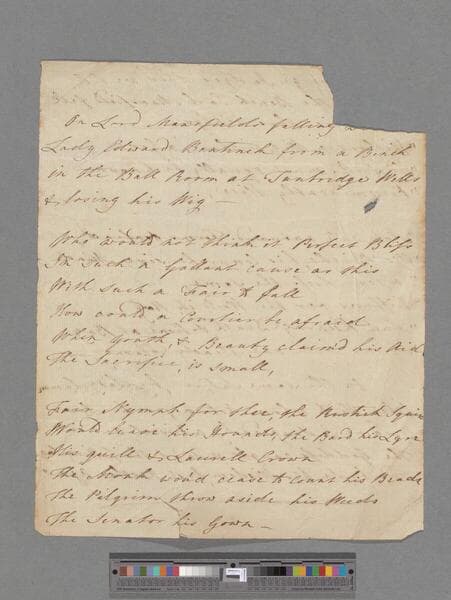 On Lord Mansfields falling
Lady Edward Bentinck from a Bench
in the Ball Room at Tunbridge Wells
& losing his Wig —
Who would not think it Perfect Bliss
In such a Gallant cause as this
With such a Fair to fall
How could a Courtier be afraid
When Youth, & Beauty claim'd his Aid
The Sacrifice, is Small,
Fair Nymph for thee, the Rustick Squire
Would leave his Hounds, the Bard his Lyre
His quill & Laurell Crown
The Monk wou'd cease to Count his Beads
The Pilgrim throw aside his Weeds
The Senator his Gown —